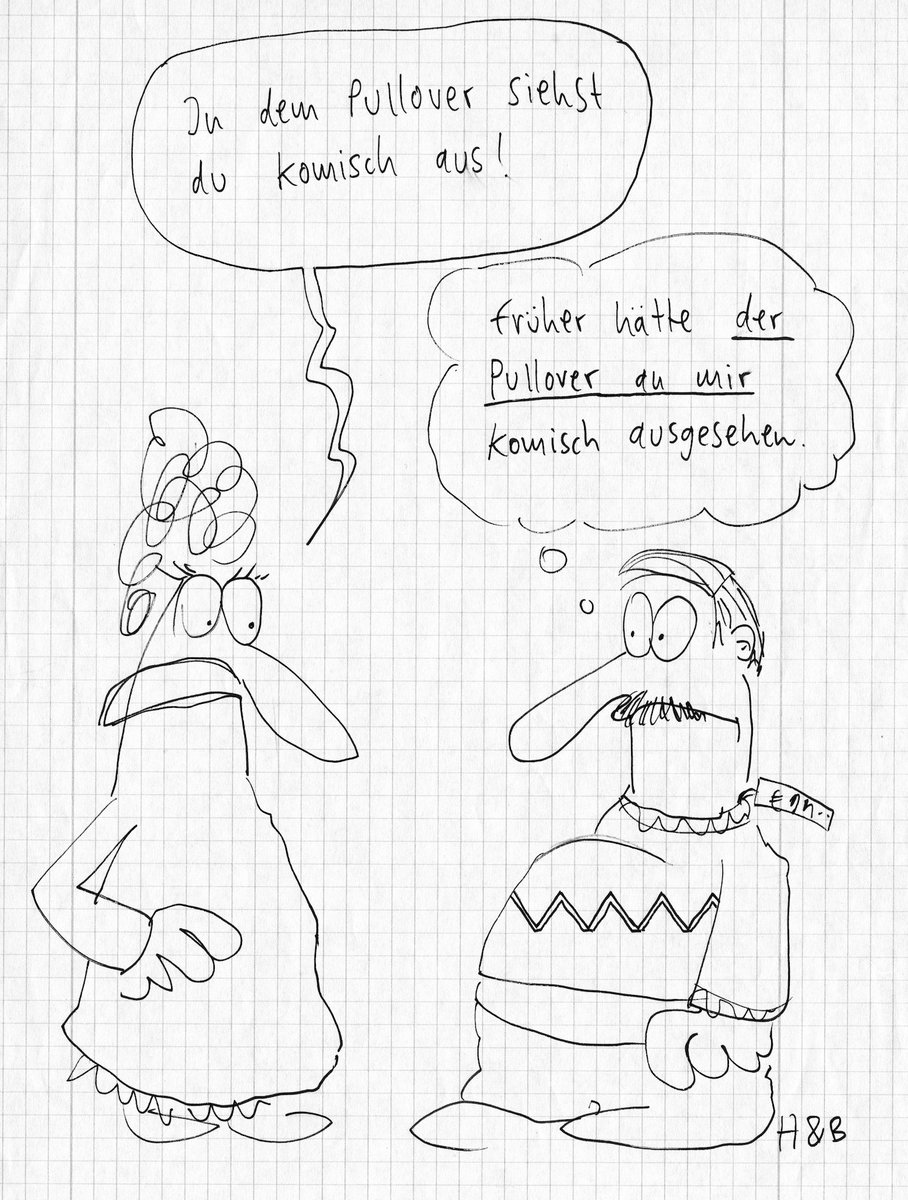 In dem Pullover siehst
du komisch aus!
früher hätte der
Pullover an mir
komisch ausgesehen.
€
H & B